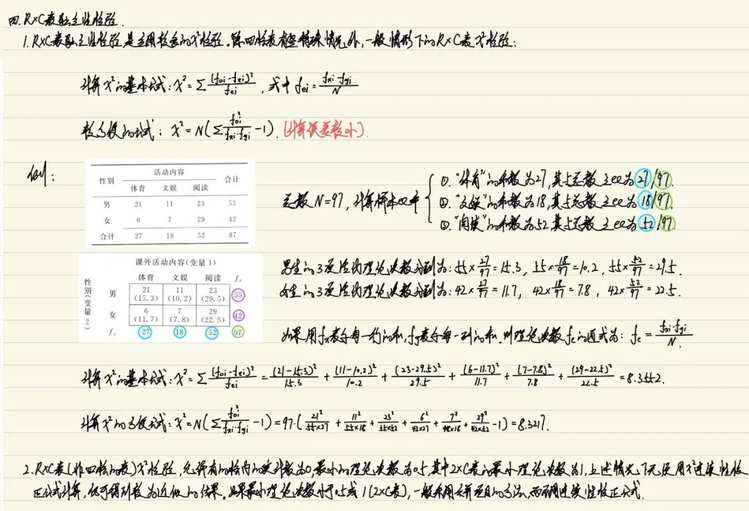 四. R×C表独立性检验.
1. R×C表独立性检验是应用较多的χ²检验. 除四格表有些特殊情况外, 一般情形下的R×C表χ²检验:
计算χ²的基本公式: χ² = Σ (f₀ᵢ-fₑᵢ)²/fₑᵢ , 式中 fₑᵢ = fₓᵢ·fᵧᵢ/N
较方便的公式: χ² = N(Σ f₀ᵢ²/fₓᵢ·fᵧᵢ -1). (计算误差较小)
例:
性别 活动内容 合计
体育 文娱 阅读
男 21 11 23 55
女 6 7 29 42
合计 27 18 52 97
总数N=97, 计算样本比率
①. “体育”的和数为27, 其与总数之比为27/97.
②. “文娱”的和数为18, 其与总数之比为18/97.
③. “阅读”的和数为52, 其与总数之比为52/97.
课外活动内容(变量1)
体育 文娱 阅读 fₓ
性别(变量2)
男 21 (15.3) 11 (10.2) 23 (29.5) 55
女 6 (11.7) 7 (7.8) 29 (22.5) 42
fᵧ 27 18 52 97
男生的3项活动理论次数分别为: 55×27/97=15.3, 55×18/97=10.2, 55×52/97=29.5.
女生的3项活动理论次数分别为: 42×27/97=11.7, 42×18/97=7.8, 42×52/97=22.5.
如果用fₓ表示每一行的和, fᵧ表示每一列的和, 则理论次数fₑ的通式为: fₑ = fₓᵢ·fᵧᵢ/N.
计算χ²的基本公式: χ² = Σ (f₀ᵢ-fₑᵢ)²/fₑᵢ = (21-15.3)²/15.3 + (11-10.2)²/10.2 + (23-29.5)²/29.5 + (6-11.7)²/11.7 + (7-7.8)²/7.8 + (29-22.5)²/22.5 = 8.3552.
计算χ²的方便公式: χ² = N(Σ f₀ᵢ²/fₓᵢ·fᵧᵢ -1) = 97·(21²/55×27 + 11²/55×18 + 23²/55×52 + 6²/42×27 + 7²/42×18 + 29²/42×52 -1) = 8.3217.
2. R×C表(非四格的表)χ²检验, 允许有的格内的实计数为0, 最小的理论次数为0.5, 其中2×C表的最小理论次数为1, 上述情况下无须用χ²连续性校
正公式计算, 仍可得到较为近似的结果. 如果最小理论次数小于0.5或1(2×C表), 一般采用合并项目的方法, 而不用连续性校正公式.